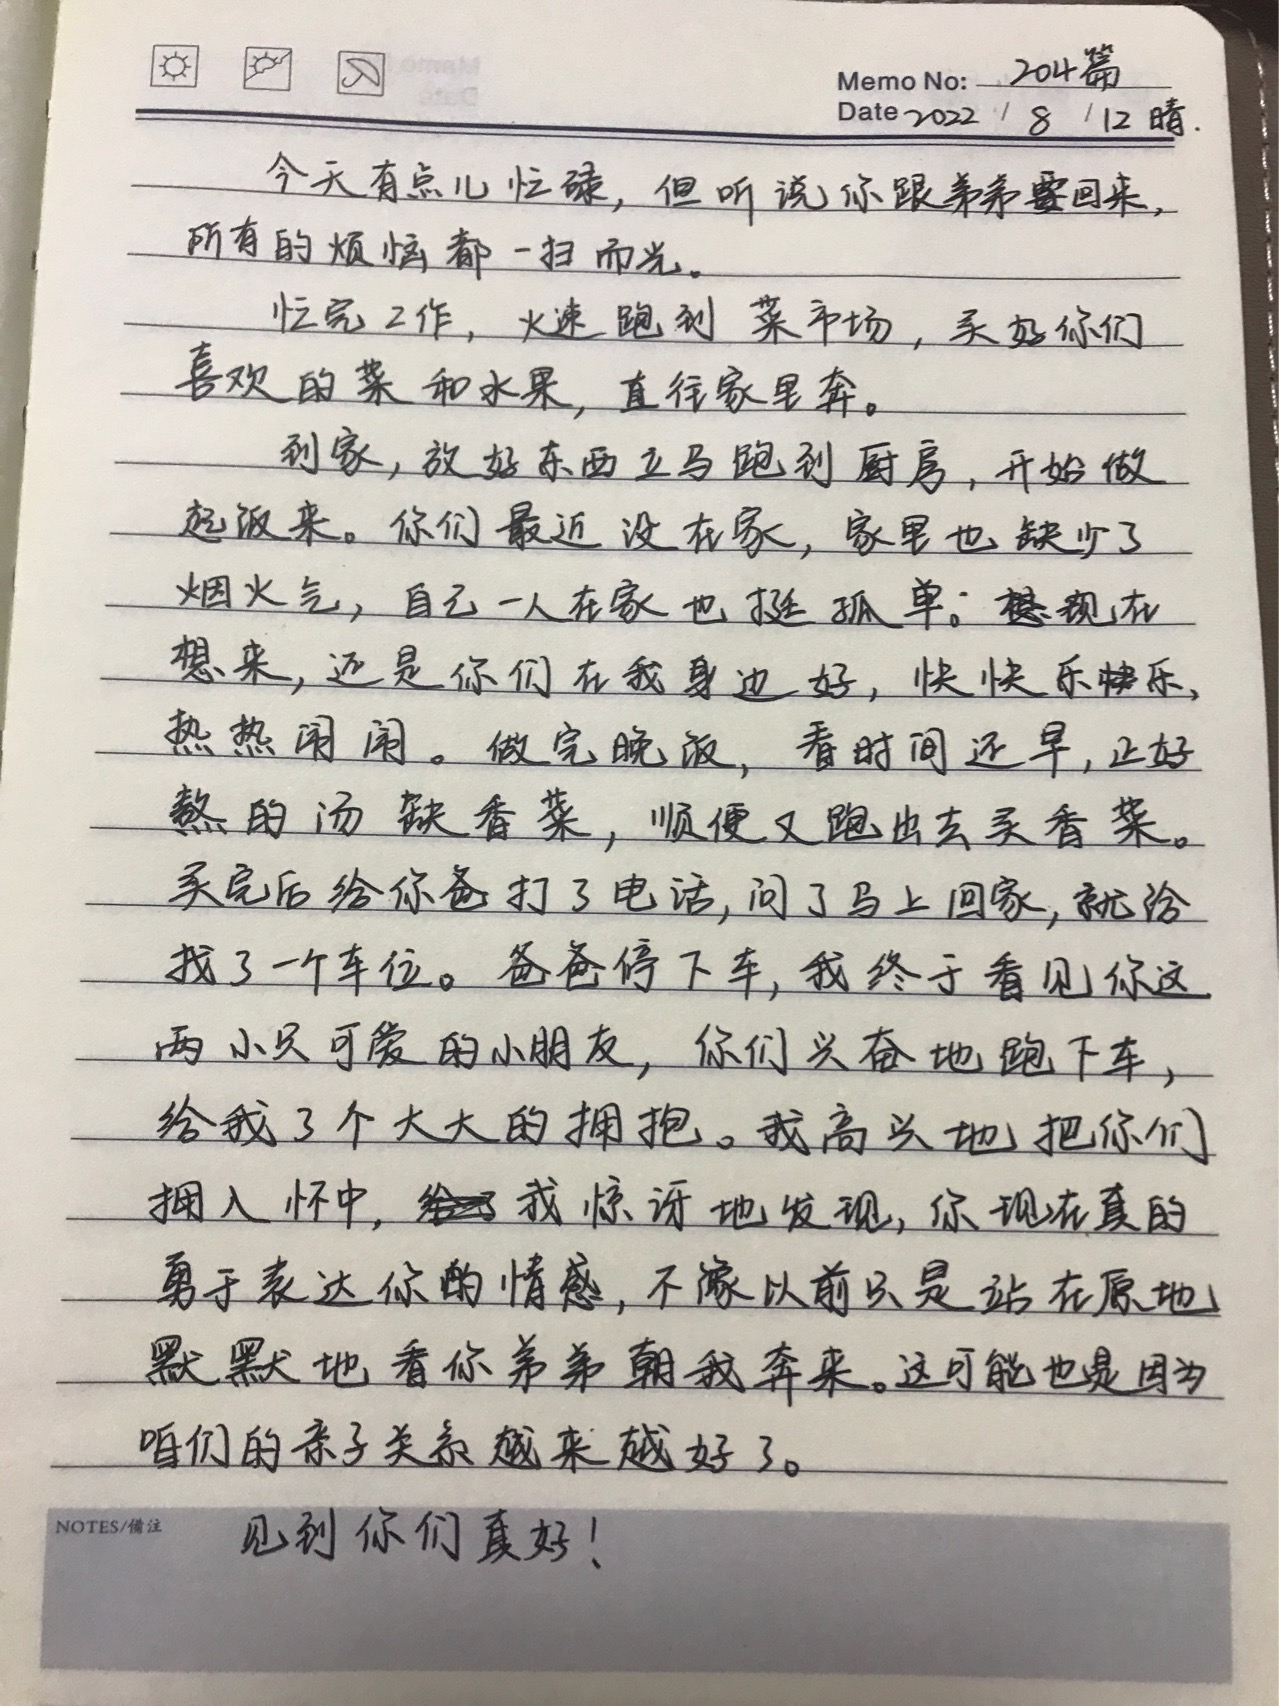 Memo No: 204篇
Date 2022 / 8 / 12 晴.
今天有点儿忙碌，但听说你跟弟弟要回来，
所有的烦恼都一扫而光。
忙完工作，火速跑到菜市场，买好你们
喜欢的菜和水果，直往家里奔。
到家，放好东西立马跑到厨房，开始做
起饭来。你们最近没在家，家里也缺少了
烟火气，自己一人在家也挺孤单。现在
想来，还是你们在我身边好，快快乐乐、
热热闹闹。做完晚饭，看时间还早，正好
熬的汤缺香菜，顺便又跑出去买香菜。
买完后给你爸打了电话，问了马上回家，就给
找了一个车位。爸爸停下车，我终于看见你这
两小只可爱的小朋友，你们兴奋地跑下车，
给我了个大大的拥抱。我高兴地把你们
拥入怀中，我惊讶地发现，你现在真的
勇于表达你的情感，不像以前只是站在原地
默默地看你弟弟朝我奔来。这可能也是因为
咱们的亲子关系越来越好了。
NOTES/备注
见到你们真好！